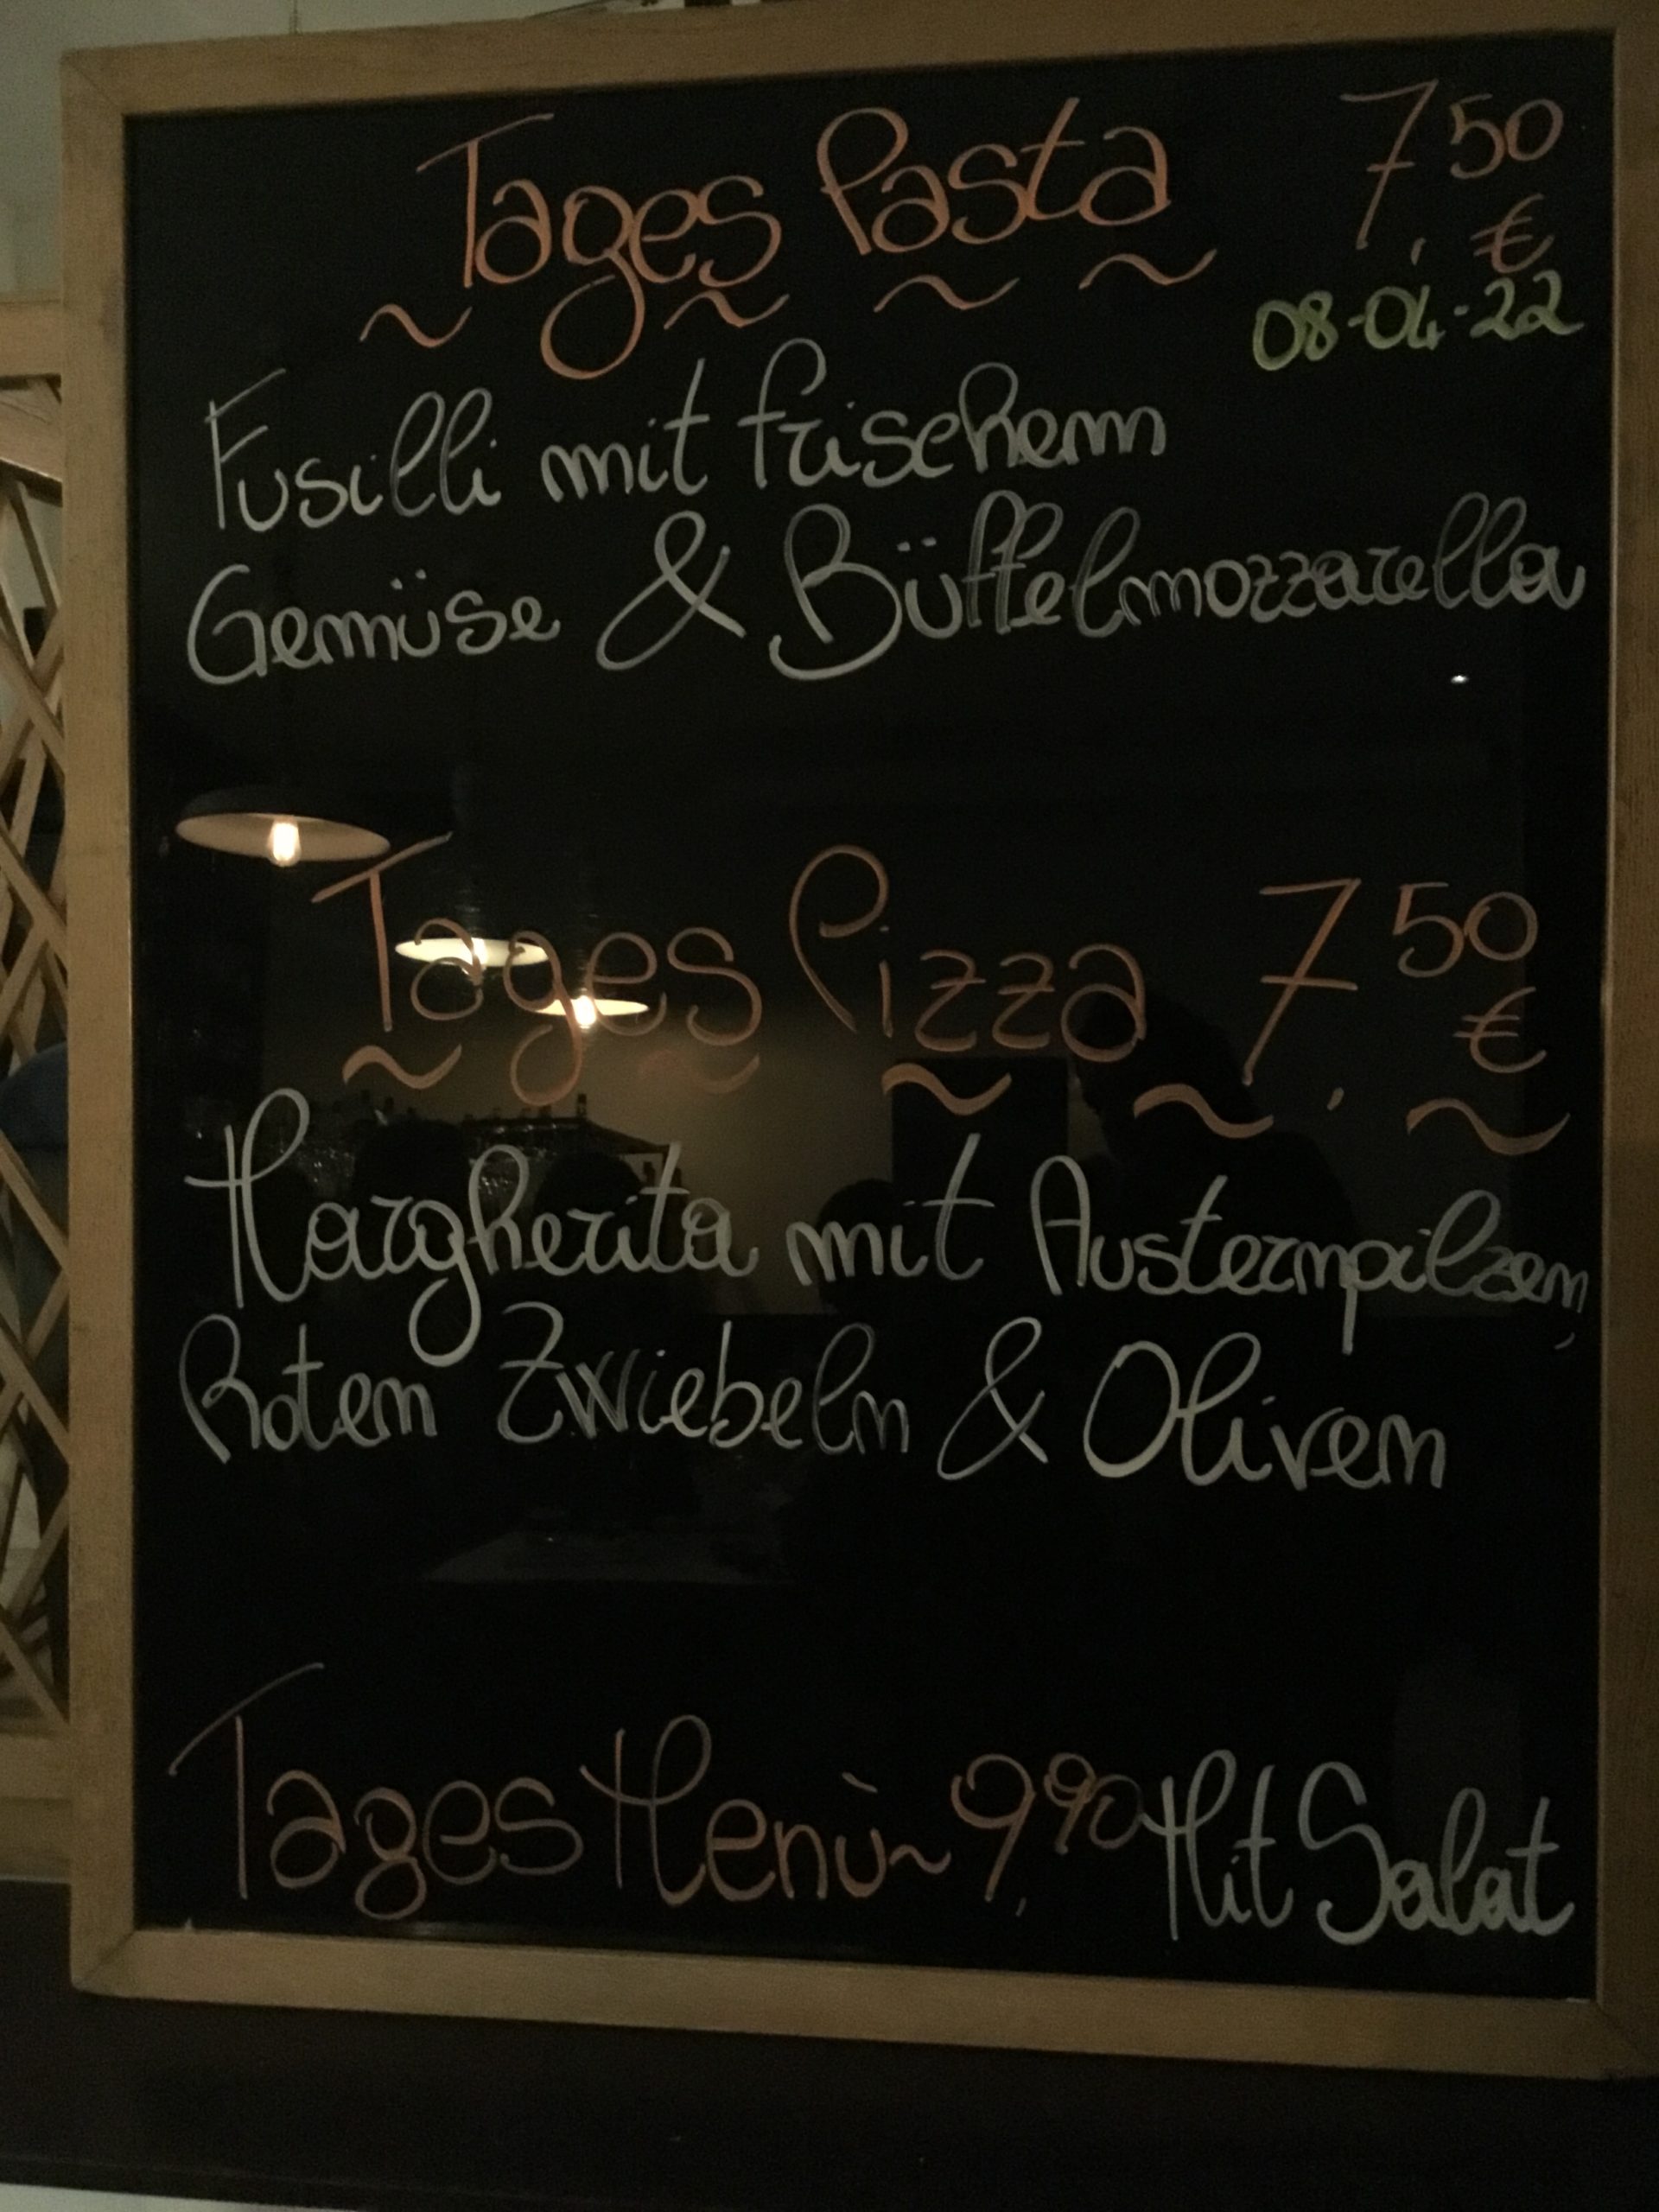 Tages Pasta 7,50 €
08-04-22
Fusilli mit frischem
Gemüse & Büffelmozzarella
Tages Pizza 7,50 €
Margherita mit Austernpilzen,
Roten Zwiebeln & Oliven
Tages Menù ~ 9,90 Mit Salat